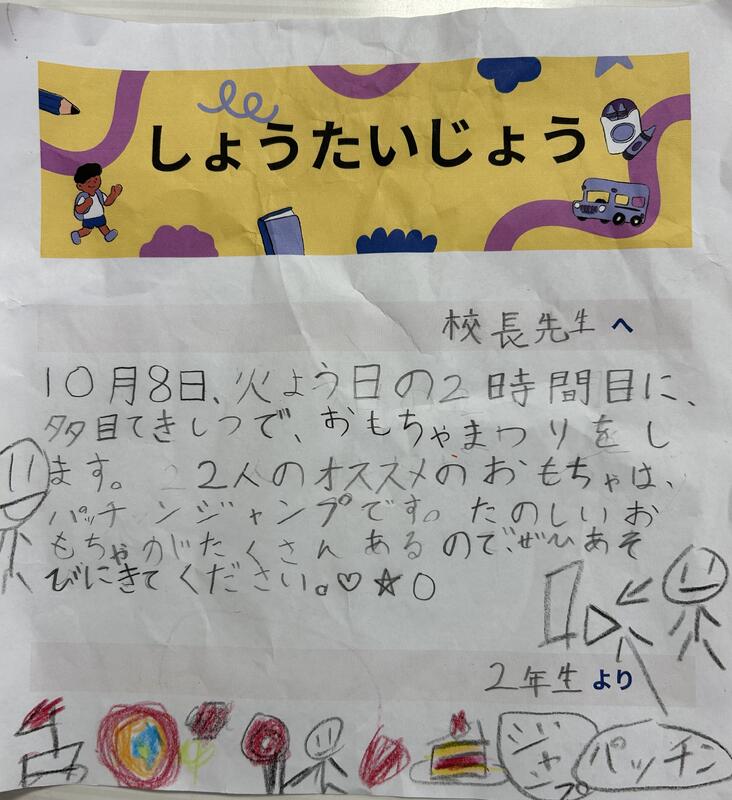 しょうたいじょう
校長先生へ
10月8日、火よう日の2時間目に、
多目てきしつで、おもちゃまつりをし
ます。2人のオススメのおもちゃは、
パッチンジャンプです。たのしいお
もちゃがたくさんあるので、ぜひあそ
びにきてください。♡☆○
2年生より
パッチン